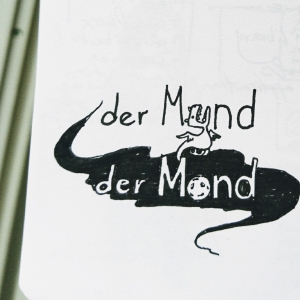 der Mund
der Mond